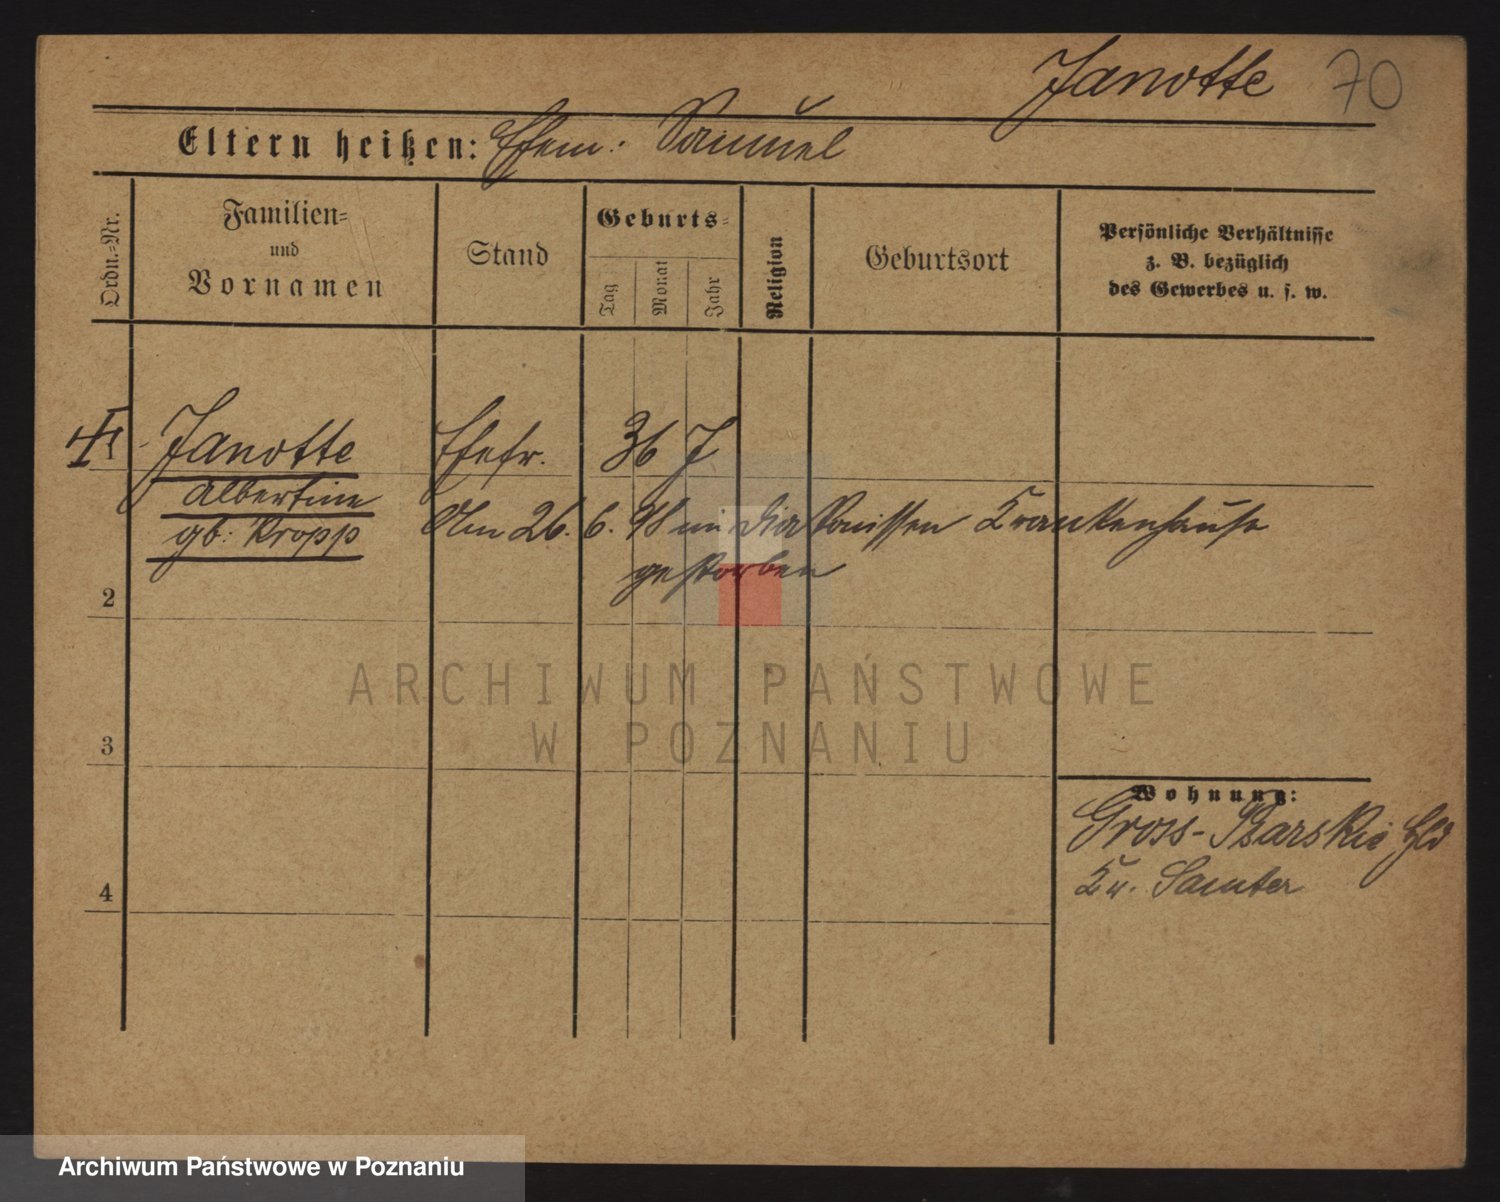 Janotte 70
Eltern heißen: Ehem: Samuel
Ordn.-Nr.
Familien-
und
Vornamen
Stand
Geburts-
Tag
Monat
Jahr
Religion
Geburtsort
Persönliche Verhältnisse
z. B. bezüglich
des Gewerbes u. s. w.
1 Janotte Ehefr. 36 J
Albertine
gb: Kropp
Am 26. 6. 98 im Diakonissen Krankenhause
gestorben
2
3
4
Wohnung:
Gross-Psarskie Hld
Kr. Samter
ARCHIWUM PAŃSTWOWE
W POZNANIU
Archiwum Państwowe w Poznaniu